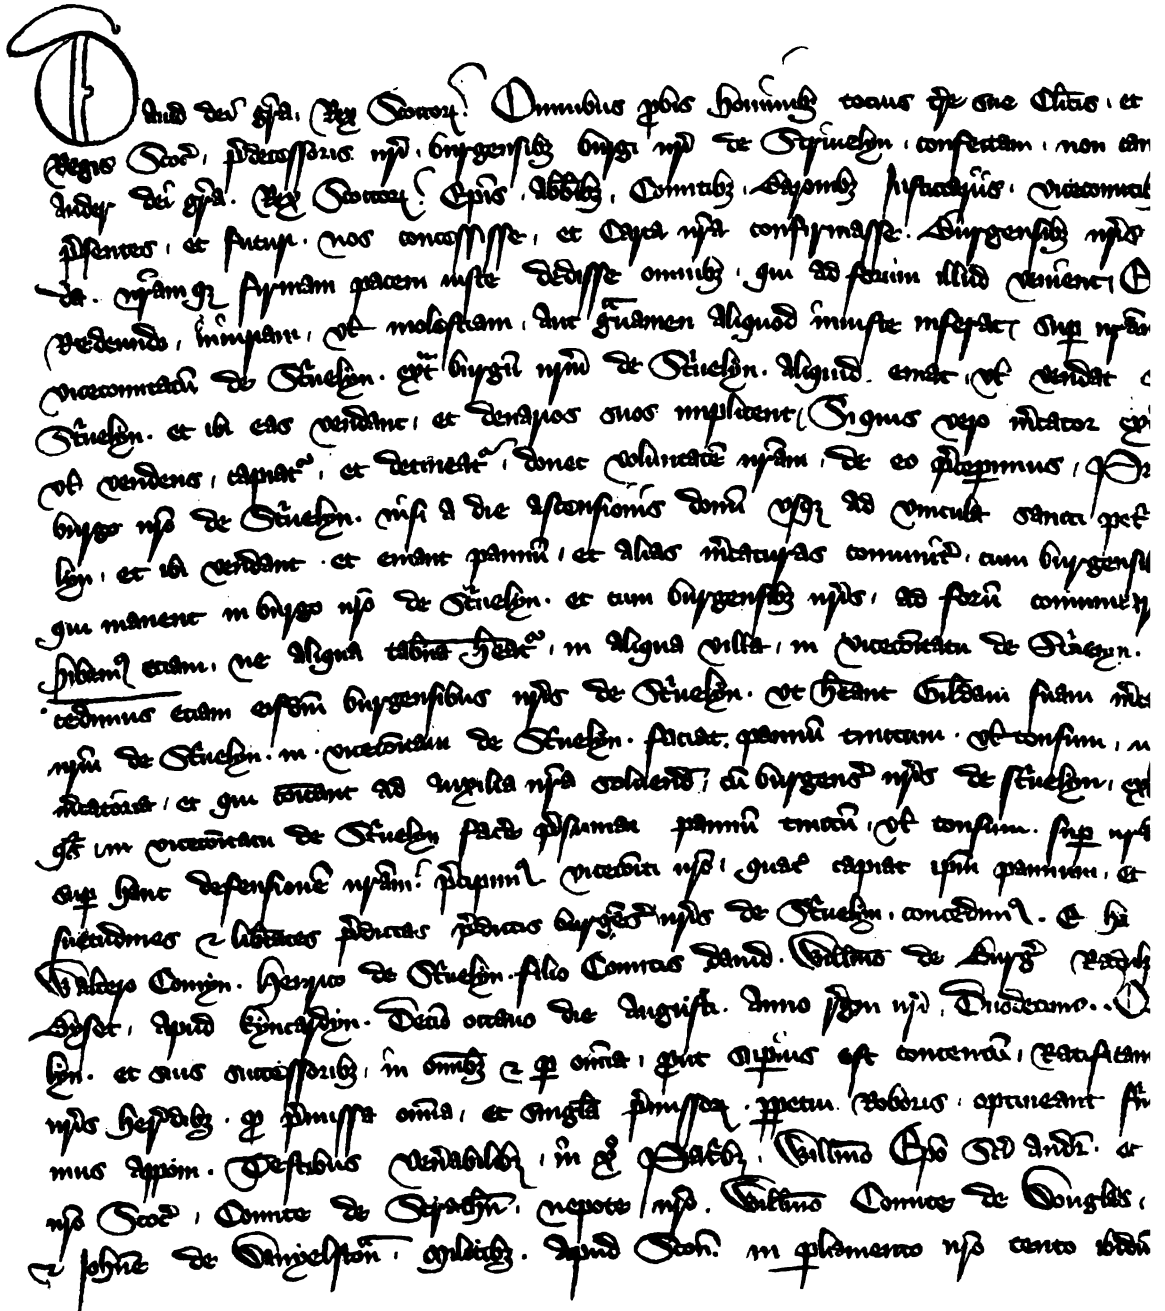 Dauid dei gr̃a Rex Scottoꝝ Omnibus ꝓbis hominibȝ tocius tr̃e sue Cl̃icis et
Regis Scoc̃ p̃decessoris nr̃i burgensibȝ burgi nr̃i de Striuelyn confectam non
ander dei gr̃a Rex Scottoꝝ Ep̃is Abb̃ibȝ Comitibȝ Baronibȝ Justiciarijs
p̃sentes et futuri nos concessisse et Carta nr̃a confirmasse Burgensibȝ nr̃is
nr̃amqȝ firmam pacem iuste dedisse omnibȝ qui ad forum illud venient
Redeundo iniuriam vl̃ molestiam aut g̃uamen aliquod iniuste inferat suꝑ
vicecomitatũ de St̃uelyn ext̃ burgũ nr̃m de St̃uelyn aliquid emat vl̃ vendat
St̃uelyn et ibi eas vendant et denarios suos implicent Siquis vero m̃cator
vl̃ vendens capiat̃ et detineat̃ donec voluntatẽ nr̃am de eo p̃ceperimus
burgo nr̃o de St̃uelyn nisi a die ascensionis domĩ usqȝ ad vincula sancti pet̃
lyn et ibi vendant et emant pannũ et alias m̃caturas comunit̃ cum
qui manent in burgo nr̃o de St̃uelyn et cum burgensibȝ nr̃is ad forũ
ꝓhibem⁹ eciam ne aliqua tab̃na h̃eat̃ in aliqua villa in vicecom̃itatu de St̃uelyn
cedimus eciam eisdm̃ burgensibus nr̃is de St̃uelyn vt h̃eant Gildam suam
nr̃m de St̃uelyn in vicecom̃itatu de St̃uelyn faciat pannũ tinctum vl̃ tonsum
m̃catoria et qui com̃icant ad auxilia nr̃a soluend̃ cũ burgens̃ nr̃is de St̃uelyn
q̃s in vicecom̃itatu de St̃uelyn fac̃e p̃sumat pannũ tinctũ vl̃ tonsum suꝑ
suꝑ hanc defensionẽ nr̃am p̃cipim⁹ vicecom̃iti nr̃o quat̃ capiat ip̃m pannum et
suetudines ⁊ lib̃tates p̃dictas p̃dictis burgẽs̃ nr̃is de St̃uelyn concedim⁹
Waltero Comyn Henrico de St̃uelyn filio Comitis dauid Willm̃o de
Byset apud kyncardyn Decio octauo die augusti anno r̃gni nr̃i Duodecimo
lyn et suis successoribȝ in om̃ibȝ ⁊ ꝑ om̃ia ꝓut suꝑius est contentũ
nr̃is herẽdibȝ ꝙ p̃missa om̃ia et singl̃a p̃missoꝝ ꝑpetui Roboris optineant
mus apponi Testibus ven̂abilibȝ in xp̃o Patribȝ Willm̃o Ep̃o Sc̃i andr̃ et
nr̃o Scoc̃ Comite de Strathñ nepote nr̃o Willm̃o Comite de Douglas
⁊ Joh̃ne de Danyelstoñ militibȝ apud Scoñ in ꝑliamento nr̃o tento